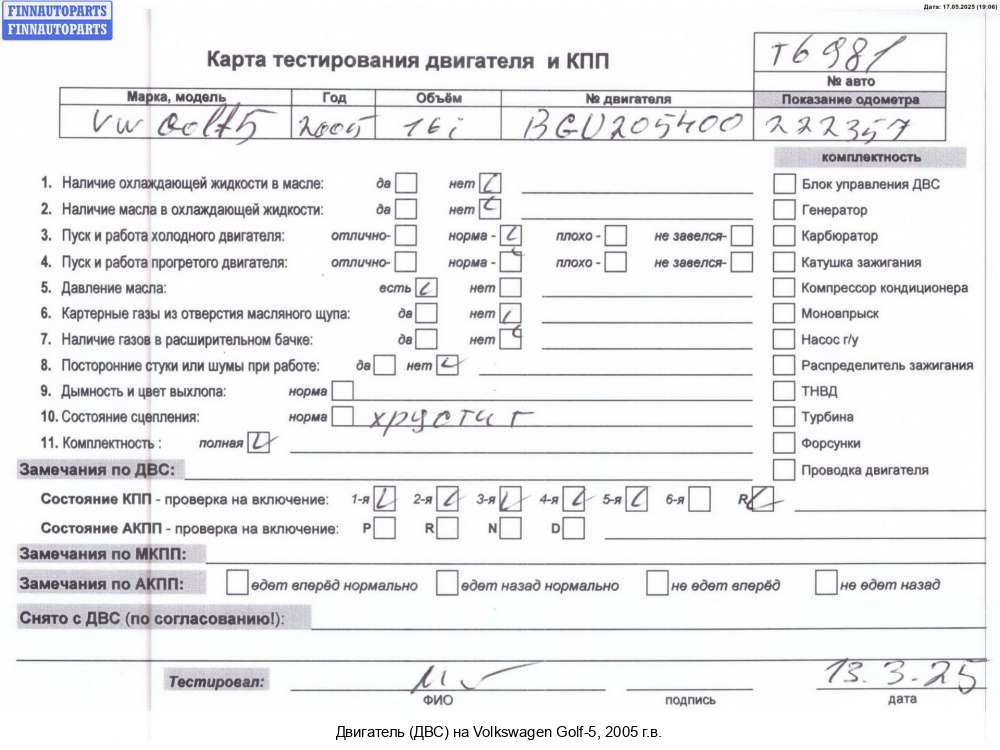 Дата: 17.05.2025 (19:06)
FINNAUTOPARTS
FINNAUTOPARTS
Карта тестирования двигателя и КПП
T6981
№ авто
Марка, модель Год Объём № двигателя Показание одометра
VW Golf5 2005 16i BGU205400 222357
комплектность
1. Наличие охлаждающей жидкости в масле: да нет Блок управления ДВС
2. Наличие масла в охлаждающей жидкости: да нет Генератор
3. Пуск и работа холодного двигателя: отлично- норма - плохо - не завелся- Карбюратор
4. Пуск и работа прогретого двигателя: отлично- норма - плохо - не завелся- Катушка зажигания
5. Давление масла: есть нет Компрессор кондиционера
6. Картерные газы из отверстия масляного щупа: да нет Моновпрыск
7. Наличие газов в расширительном бачке: да нет Насос г/у
8. Посторонние стуки или шумы при работе: да нет Распределитель зажигания
9. Дымность и цвет выхлопа: норма ТНВД
10. Состояние сцепления: норма хрустит Турбина
11. Комплектность : полная Форсунки
Замечания по ДВС: Проводка двигателя
Состояние КПП - проверка на включение: 1-я 2-я 3-я 4-я 5-я 6-я R
Состояние АКПП - проверка на включение: P R N D
Замечания по МКПП:
Замечания по АКПП: едет вперёд нормально едет назад нормально не едет вперёд не едет назад
Снято с ДВС (по согласованию!):
Тестировал: 13.3.25
ФИО подпись дата
Двигатель (ДВС) на Volkswagen Golf-5, 2005 г.в.